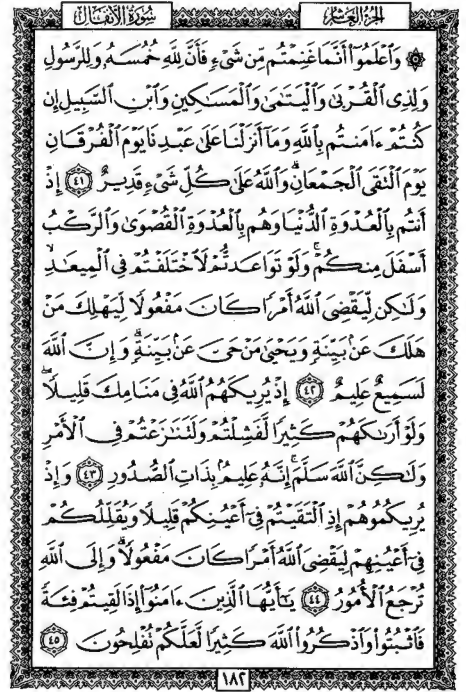 سُورَةُ الأَنفَال
الجُزءُ العَاشِرُ
۞ وَٱعْلَمُوٓا۟ أَنَّمَا غَنِمْتُم مِّن شَىْءٍ فَأَنَّ لِلَّهِ خُمُسَهُۥ وَلِلرَّسُولِ
وَلِذِى ٱلْقُرْبَىٰ وَٱلْيَتَٰمَىٰ وَٱلْمَسَٰكِينِ وَٱبْنِ ٱلسَّبِيلِ إِن
كُنتُمْ ءَامَنتُم بِٱللَّهِ وَمَآ أَنزَلْنَا عَلَىٰ عَبْدِنَا يَوْمَ ٱلْفُرْقَانِ
يَوْمَ ٱلْتَقَى ٱلْجَمْعَانِ ۗ وَٱللَّهُ عَلَىٰ كُلِّ شَىْءٍ قَدِيرٌ ٤١ إِذْ
أَنتُم بِٱلْعُدْوَةِ ٱلدُّنْيَا وَهُم بِٱلْعُدْوَةِ ٱلْقُصْوَىٰ وَٱلرَّكْبُ
أَسْفَلَ مِنكُمْ ۚ وَلَوْ تَوَاعَدتُّمْ لَٱخْتَلَفْتُمْ فِى ٱلْمِيعَٰدِ ۙ
وَلَٰكِن لِّيَقْضِىَ ٱللَّهُ أَمْرًا كَانَ مَفْعُولًا لِّيَهْلِكَ مَنْ
هَلَكَ عَنۢ بَيِّنَةٍ وَيَحْيَىٰ مَنْ حَىَّ عَنۢ بَيِّنَةٍ ۗ وَإِنَّ ٱللَّهَ
لَسَمِيعٌ عَلِيمٌ ٤٢ إِذْ يُرِيكَهُمُ ٱللَّهُ فِى مَنَامِكَ قَلِيلًا ۖ
وَلَوْ أَرَىٰكَهُمْ كَثِيرًا لَّفَشِلْتُمْ وَلَتَنَٰزَعْتُمْ فِى ٱلْأَمْرِ
وَلَٰكِنَّ ٱللَّهَ سَلَّمَ ۗ إِنَّهُۥ عَلِيمٌۢ بِذَاتِ ٱلصُّدُورِ ٤٣ وَإِذْ
يُرِيكُمُوهُمْ إِذِ ٱلْتَقَيْتُمْ فِىٓ أَعْيُنِكُمْ قَلِيلًا وَيُقَلِّلُكُمْ
فِىٓ أَعْيُنِهِمْ لِيَقْضِىَ ٱللَّهُ أَمْرًا كَانَ مَفْعُولًا ۗ وَإِلَى ٱللَّهِ
تُرْجَعُ ٱلْأُمُورُ ٤٤ يَٰٓأَيُّهَا ٱلَّذِينَ ءَامَنُوٓا۟ إِذَا لَقِيتُمْ فِئَةً
فَٱثْبُتُوا۟ وَٱذْكُرُوا۟ ٱللَّهَ كَثِيرًا لَّعَلَّكُمْ تُفْلِحُونَ ٤٥
١٨٢